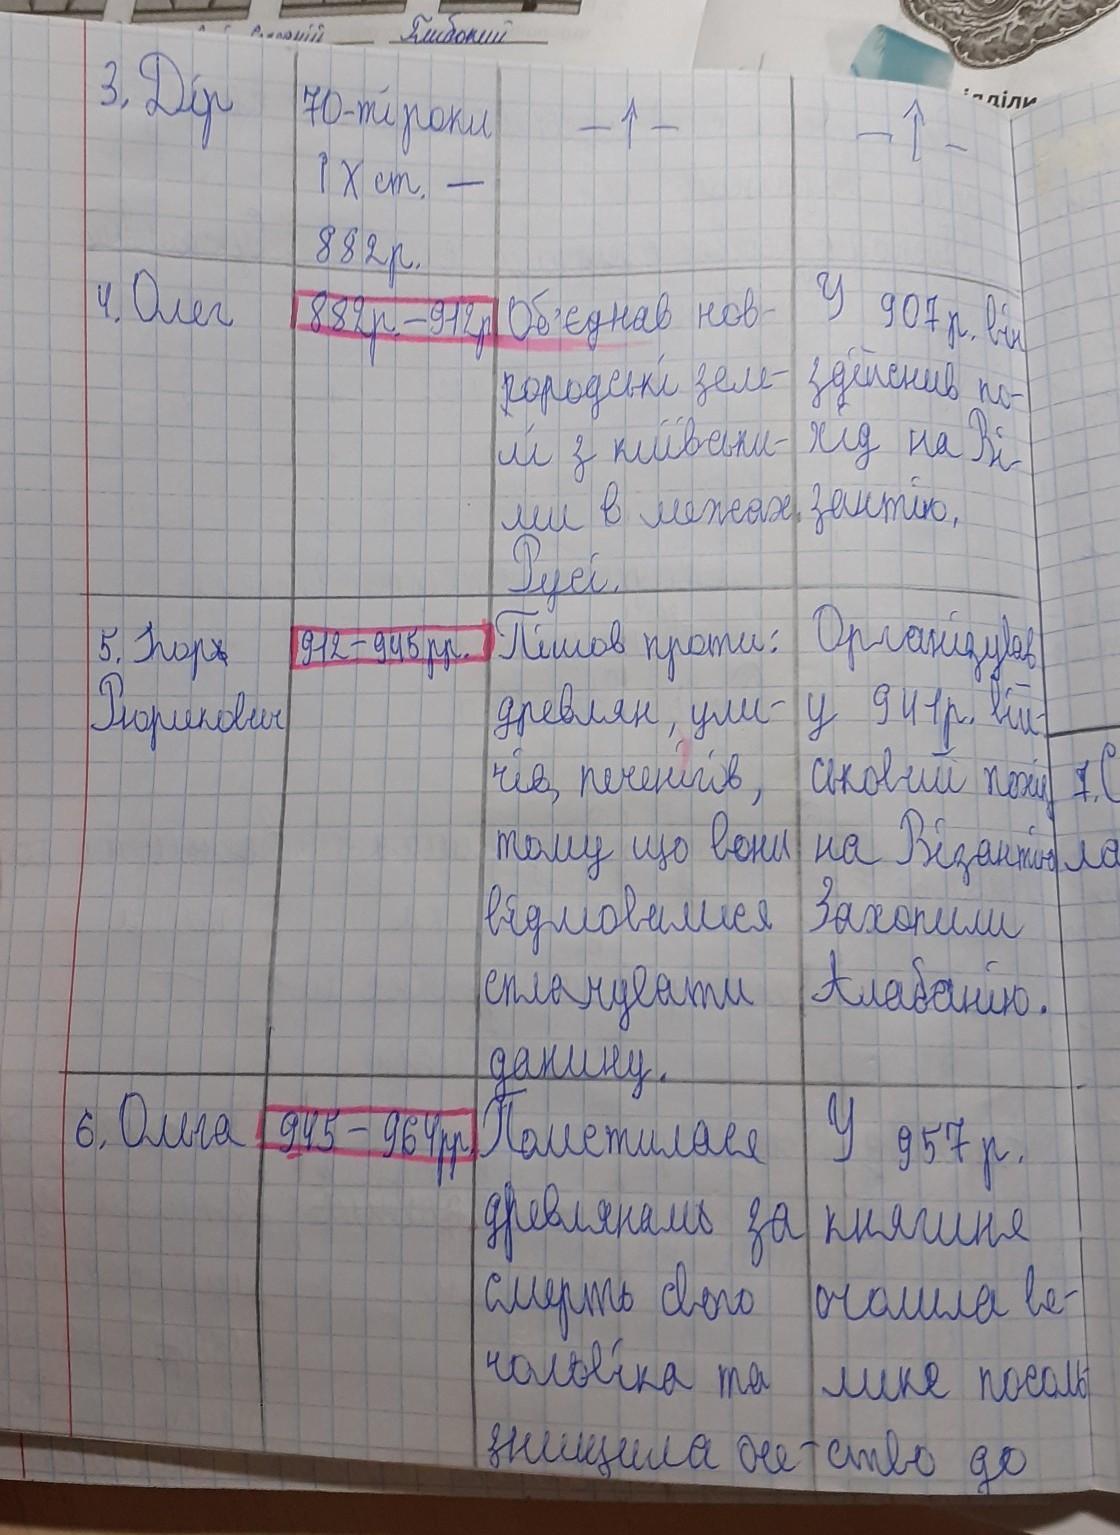 Глибокий
ідділи
3. Дір
70-ті роки
ІХ ст. —
882р.
— ↑ —
— ↑ —
4. Олег
882р. – 912р
Об'єднав нов-
городські зем-
лі з київськи-
ми в межах
Русі.
У 907р. він
здійснив по-
хід на Ві-
зантію.
5. Ігор
Рюрикович
912 – 945рр.
Пішов проти:
древлян, ули-
чів, печенігів,
тому що вони
відмовилися
сплачувати
данину.
Організував
у 941р. вій-
ськовий похід
на Візантію
Захопили
Алабанію.
6. Ольга
945 – 964рр.
Помстилася
древлянамь за
смерть свого
чоловіка та
знищила оче-
У 957р.
княгиня
очолила ве-
лике посоль
ство до
7. С
ла